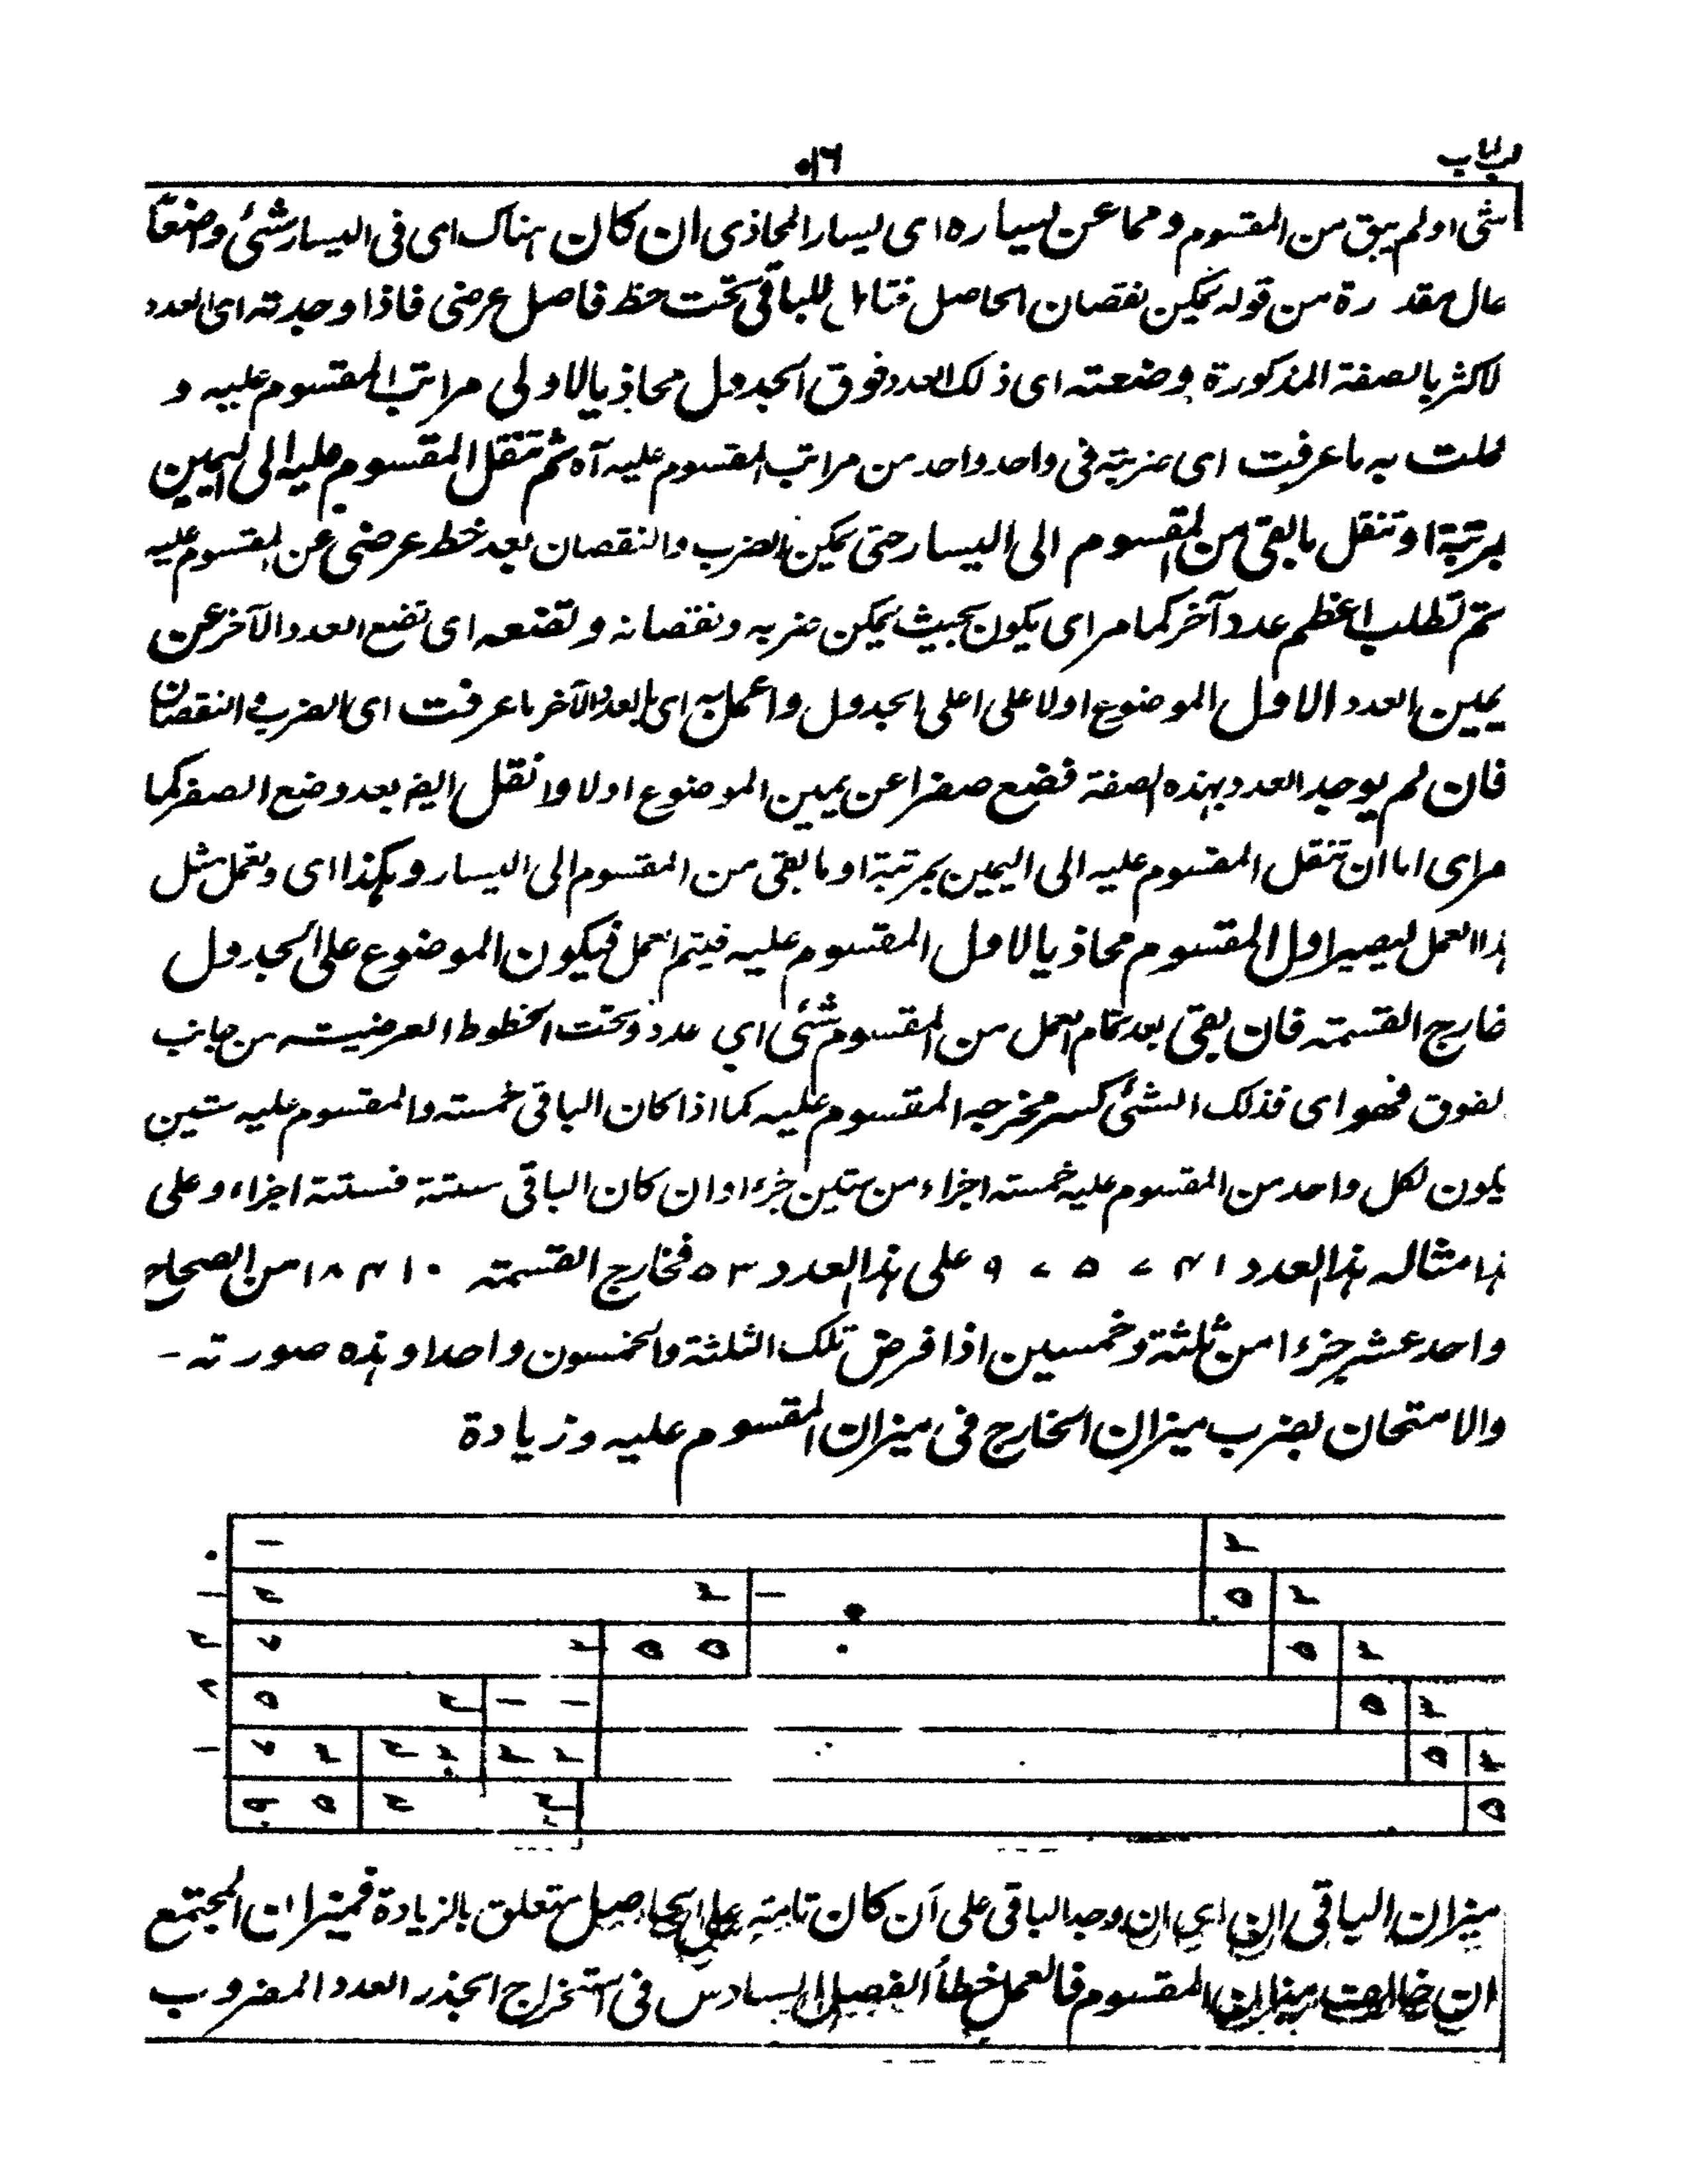 لب لباب
١٦
شئ او لم يبق من المقسوم ومما عن يساره اى يسار المحاذى ان كان هناك اى فى اليسار شئ واضعا
حال مقدرة من قوله يمكن نقصان الحاصل فتامل للباقى تحت خط فاصل عرضى فاذا وجدته اى العدد
لاكثر بالصفة المذكورة وضعته اى ذلك العدد فوق الجدول محاذيا لاولى مراتب المقسوم عليه و
عملت به ما عرفت اى ضربته فى واحد واحد من مراتب المقسوم عليه آه ثم تنقل المقسوم عليه الى اليمين
بمرتبة او تنقل ما بقى من المقسوم الى اليسار حتى يمكن الضرب والنقصان بعد خط عرضى عن المقسوم عليه
ثم تطلب اعظم عدد آخر كما مر اى يكون بحيث يمكن ضربه ونقصانه وتضعه اى تضع العدد الآخر عن
يمين العدد الاول الموضوع اولا على اعلى الجدول واعمل به اى بالعدد الآخر ما عرفت اى الضرب والنقصان
فان لم يوجد العدد بهذه الصفة فضع صفرا عن يمين الموضوع اولا وانقل ايضا بعد وضع الصفر كما
مر اى اما ان تنقل المقسوم عليه الى اليمين بمرتبة او ما بقى من المقسوم الى اليسار وهكذا اى وتعمل مثل
هذا العمل ليصير اول المقسوم محاذيا لاول المقسوم عليه فيتم العمل فيكون الموضوع على الجدول
خارج القسمة فان بقى بعد تمام العمل من المقسوم شئ اى عدد وتحت الخطوط العرضية من جانب
لفوق فهو اى فذلك الشئ كسر مخرجه المقسوم عليه كما اذا كان الباقى خمسة والمقسوم عليه ستين
يكون لكل واحد من المقسوم عليه خمسة اجزاء من ستين جزء او ان كان الباقى ستة فستة اجزاء وعلى
هذا مثاله هذا العدد ٩٧٥٧٤١ على هذا العدد ٥٣ فخارج القسمة ١٨٤١٠ من الصحاح
واحد عشر جزءا من ثلثة وخمسين اذا فرض تلك الثلثة والخمسون واحدا وهذه صورته -
والامتحان بضرب ميزان الخارج فى ميزان المقسوم عليه وزيادة
ميزان الباقى ان اى ان وجد الباقى على ان كان تامة على الحاصل متعلق بالزيادة فميزان المجتمع
ان خالف ميزان المقسوم فالعمل خطأ الفصل السادس فى استخراج الجذر العدد المضروب